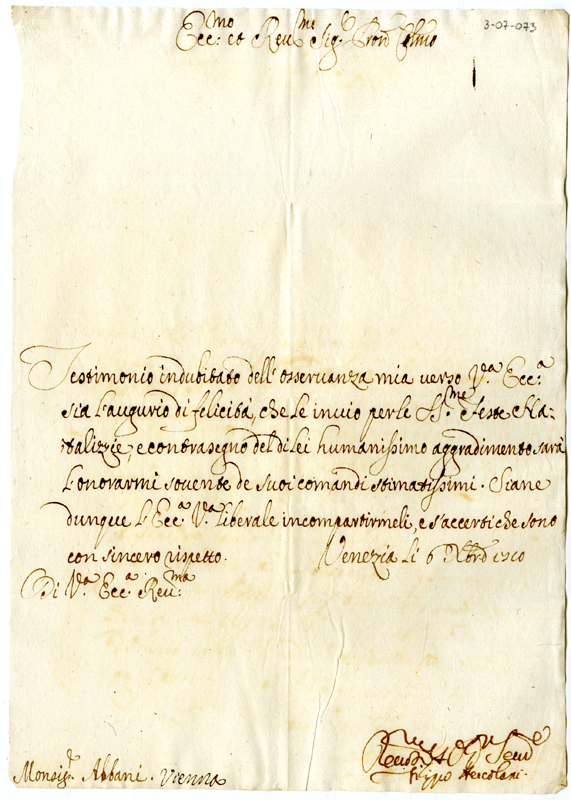 3-07-073
Ecc:mo et Reu:me Sig:e Pron Colmo
Testimonio indubitato dell' osseruanza mia verso V.a Ecc:a
sia l'augurio di felicità, che le inuio per le SS.me Feste Na-
talizzie; e contrasegno del di lei humanissimo aggradimento sarà
l'onorarmi souente de suoi comandi stimatissimi. Siane
dunque l'Ecc:a V.a liberale in compartirmeli, e s'accerti che sono
con sincero rispetto. Venezia li 6 Xbre 1710
Di V.a Ecc:a Reu:ma
Filippo Hercolani
Monsig.r Albani. Vienna